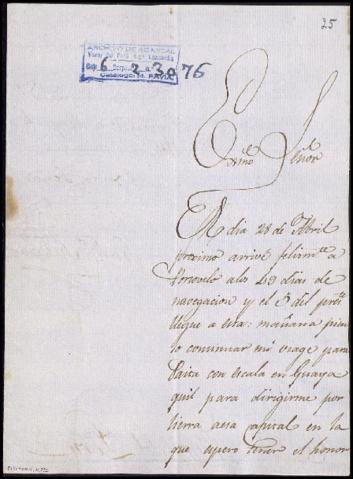 25
ARCHIVO DE ABASCAL
6 2 30 76
Exmo. Señor
El dia 28 de Abril
proximo arrivé felizmte. a
Portovelo alos 49 dias de
navegacion y el 3 del preste.
llegue a esta: mañana pien
so continuar mi viage para
Paita con escala en Guaya
quil para dirigirme por
tierra aesa capital en la
que espero tener el honor